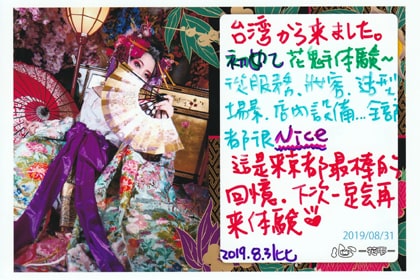 台湾から来ました。
初めて花魁体験～
從服務、妝容、造型
場景、店内設備...全部
都很Nice
這是來京都最棒的
回憶，下次一定会再
来体驗
2019.8.31
2019/08/31
心 -花雫-